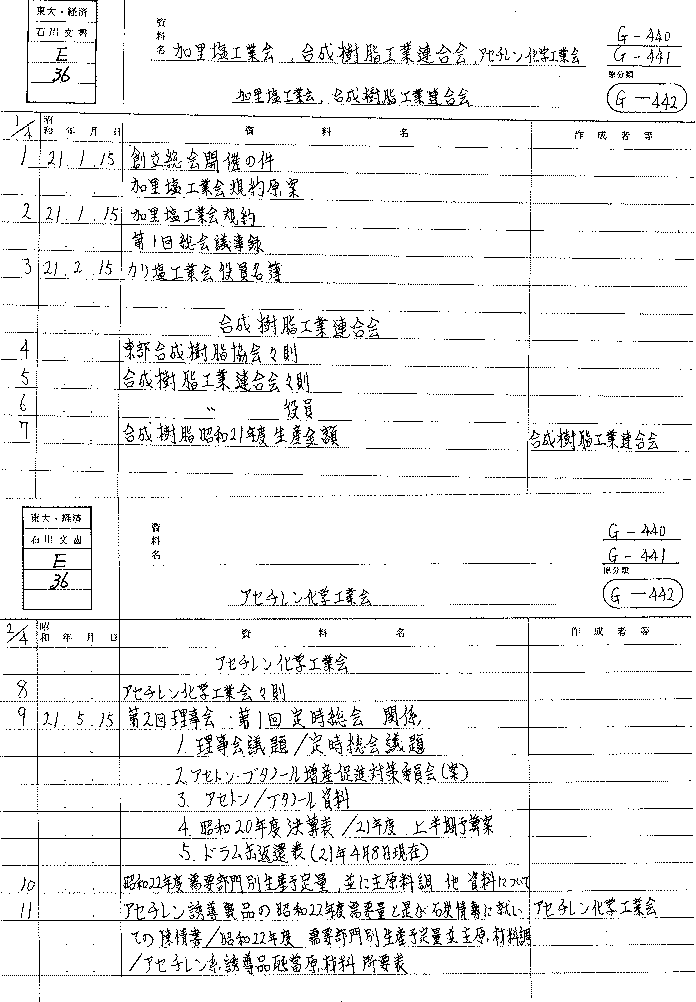 東大・経済
石川文書
E
36
資料名
加里塩工業会、合成樹脂工業連合会、アセチレン化学工業会
加里塩工業会, 合成樹脂工業連合会
G-440
G-441
原分類
G-442
1/4 昭和 年 月 日 資 料 名 作 成 者 等
1 21. 1. 15 創立総会開催の件
加里塩工業会規約原案
2 21. 1. 15 加里塩工業会規約
第1回総会議事録
3 21. 2. 15 カリ塩工業会役員名簿
合成樹脂工業連合会
4 東部合成樹脂協会々則
5 合成樹脂工業連合会々則
6 〃 役員
7 合成樹脂昭和21年度生産金額 合成樹脂工業連合会
東大・経済
石川文書
E
36
資料名
アセチレン化学工業会
G-440
G-441
原分類
G-442
2/4 昭和 年 月 日 資 料 名 作 成 者 等
アセチレン化学工業会
8 アセチレン化学工業会々則
9 21. 5. 15 第2回理事会・第1回定時総会 関係
1. 理事会議題/定時総会議題
2. アセトン・ブタノール増産促進対策委員会(案)
3. アセトン/ブタノール資料
4. 昭和20年度決算表/21年度 上半期予算案
5. ドラム缶返還表(21年4月8日現在)
10 昭和22年度需要部門別生産予定量, 並に主原料調 他 資料について
11 アセチレン誘導製品の昭和22年度需要量と 石炭 に就い アセチレン化学工業会
ての陳情書/昭和22年度 需要部門別生産予定量並主原,材料調
/アセチレン系誘導品 原,材料所要表